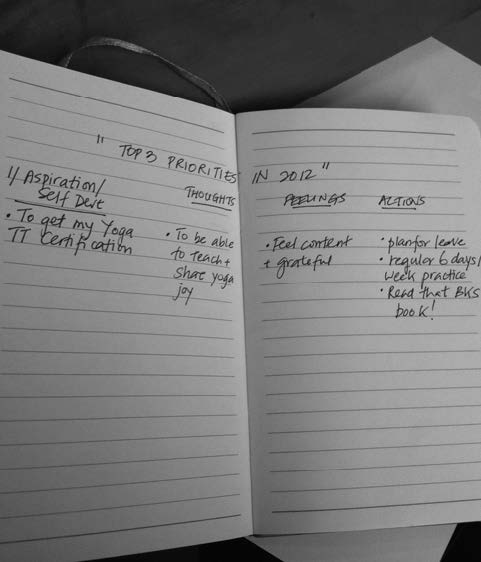 " TOP 3 PRIORITIES IN 2012 "
1/ Aspiration/
Self Devt
• To get my Yoga
TT Certification
THOUGHTS
• To be able
to teach +
share yoga
joy
FEELINGS
• Feel content
+ grateful
ACTIONS
• plan for leave
• regular 6 days/
week practice
• Read that BKS
book!